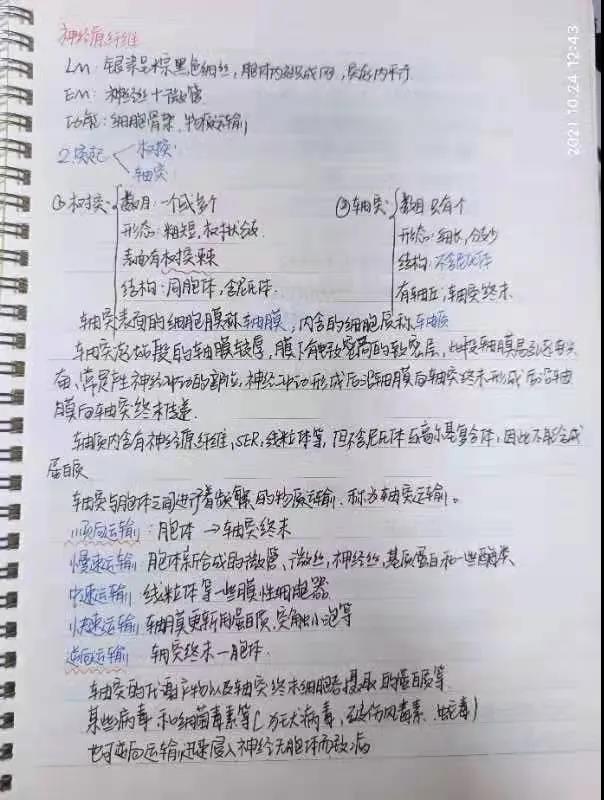 神经原纤维
LM: 银染呈棕黑色细丝, 胞体内交织成网, 突起内平行
EM: 神经丝+微管
功能: 细胞骨架、物质运输
2.突起 树突
轴突
①树突 数目: 一个或多个
形态: 粗短, 树枝状分支.
表面有树突棘
结构: 同胞体, 含尼氏体.
②轴突 数目 只有一个
形态: 细长, 分支少
结构: 不含尼氏体
有轴丘, 轴突终末.
轴突表面的细胞膜称轴膜, 内含的细胞质称轴质
轴突起始段的轴膜较厚, 膜下有致密层, 此段轴膜易引起电兴
奋, 常是产生神经冲动的部位, 神经冲动形成后沿轴膜向轴突终末形成后沿轴
膜向轴突终末传递.
轴质内含有神经原纤维, SER, 线粒体等, 但不含尼氏体与高尔基复合体, 因此不能合成
蛋白质
轴突与胞体之间进行着频繁的物质运输, 称为轴突运输。
顺向运输: 胞体→轴突终末
慢速运输 胞体新合成的微管、微丝, 神经丝, 基质蛋白和一些酶类
中速运输 线粒体等一些膜性细胞器
快速运输 轴膜更新用蛋白质、突触小泡等
逆向运输 轴突终末—胞体.
轴突的代谢产物以及轴突终末细胞摄取的蛋白质等
某些病毒和细菌毒素等(狂犬病毒, 破伤风毒素、蛇毒)
也可逆向运输迅速侵入神经元胞体而致病
2021.10.24 12:43